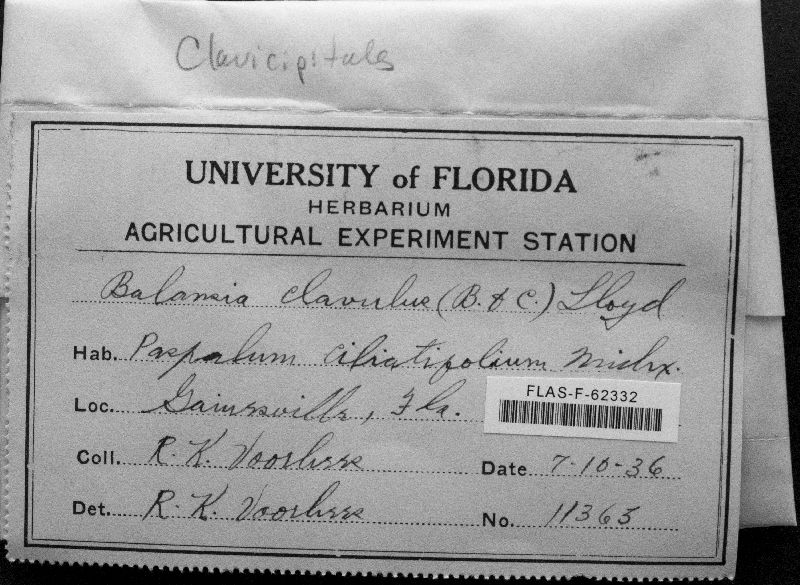 Clavicipitales
UNIVERSITY of FLORIDA
HERBARIUM
AGRICULTURAL EXPERIMENT STATION
Balansia clavulus (B. & C.) Lloyd
Hab. Paspalum ciliatifolium Michx.
Loc. Gainesville, Fla.
FLAS-F-62332
Coll. R. K. Voorhees Date 7-10-36
Det. R. K. Voorhees No. 11363